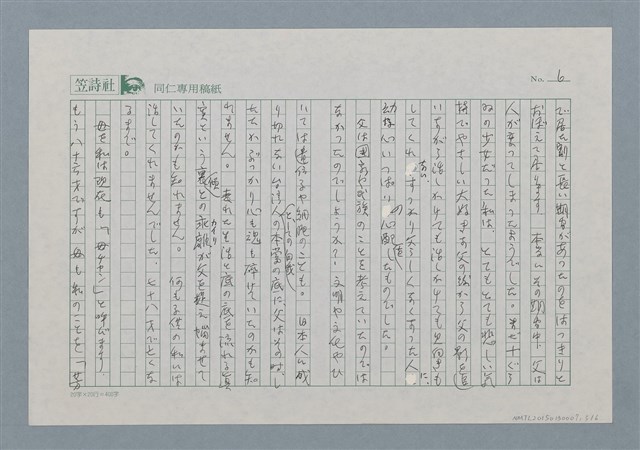 笠詩社 同仁専用稿紙
No. 6
で居た割と長い期間があったのをはっきりと
おぼえて居ります。本当にその期間中、父は
人が変ってしまったようでした。まだ十ぐら
ゐの少女だった私は、とてもとても悲しい気
持でやさしい大好きな父の後から父の影を追
いながら話しかけても話しかけても見向きも
してくれない、すっかり笑らくなった人に、
幼な心いっぱいの心配したものでした。
父は国あるいは民族のことを考えていたのでは
なかったのでしょうか。文明や文化やひ
いては遺伝子や細胞のことも。日本人に成
り切れない台湾人としての自我の本当の底に、父はその時、し
たたかぶつかり心も魂も砕けていたのかも知
れません。表れた生活と底の底を流れる真
実という裏との乖離が父を捉え悩ませて
いたのかも知れません。何も子供の私には
話してくれませんでした。七十八才で亡くな
るまで。
母を私は現在も「母チャン」と呼びます。
もう八十六才ですが母も私のことを「芳
20字×20行=400字
NMTL20150130007